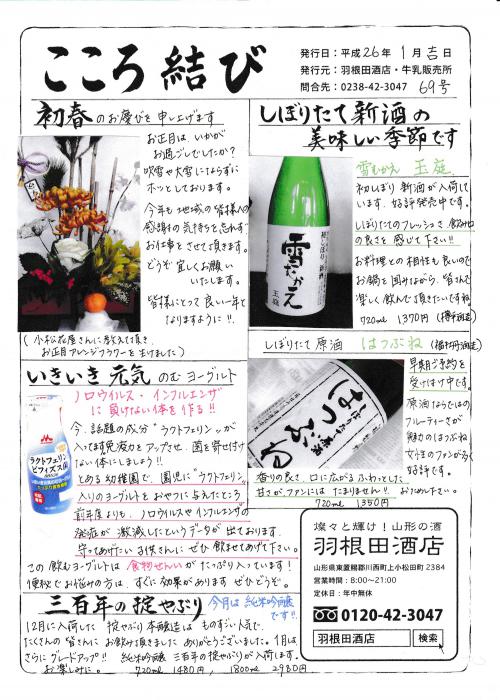 こころ結び
発行日：平成26年1月吉日
発行元：羽根田酒店・牛乳販売所
問合先：0238-42-3047 69号
初春のお慶びを申し上げます
お正月は、いかが
お過ごしでしたか？
吹雪や大雪にならずに
ホッとしております。
今年も地域の皆様への
感謝の気持ちを忘れず
お仕事をさせて頂きます。
どうぞ宜しくお願い
いたします。
皆様にとって良い一年と
なりますように!!
(小松花屋さんに教えて頂き、
お正月アレンジフラワーを生けました)
しぼりたて新酒の
美味しい季節です
雪むかえ 玉庭
初しぼり新酒が入荷して
います。好評発売中です。
しぼりたてのフレッシュさ、飲み口
の良さを感じて下さい!!
お料理との相性も良いので
お鍋を囲みながら、皆さんで
楽しく飲んで頂きたいですね
720ml 1370円(樽平酒造)
雪むかえ
玉庭
しぼりたて原酒 はつぶね
早期ご予約を
受付け中です。
原酒ならではの
フルーティーさが
魅力のはつぶね
女性のファンが多く
好評です。
はつぶね
香りの良さ、口に広がるふわっとした
甘さがファンにはたまりません!! お試め下さい。
720ml 1350円
いきいき元気のむヨーグルト
ノロウイルス・インフルエンザ
に負けない体を作る!!
今、話題の成分“ラクトフェリン”が
入ってます。免疫力をアップさせ、菌を寄せ付け
ない体にしましょう!!
とある幼稚園で、園児に“ラクトフェリン”
入りのヨーグルトをおやつに与えたところ
前年度よりも、ノロウイルスやインフルエンザの
発症が激減したというデータが出ております。
守ってあげたい子供さんにぜひ飲ませてあげて下さい。
この飲むヨーグルトは食物せんいがたっぷり入っています!
便秘でお悩みの方は、すぐに効果があります ぜひどうぞ。
森永
ラクトフェリン
ビフィズス菌
三百年の掟やぶり 今月は純米吟醸
です!!
12月に入荷した掟やぶり本醸造は ものすごい人気で、
たくさんの皆さんにお飲み頂きました ありがとうございました。1月は
さらにグレードアップ!! 純米吟醸 三百年の掟やぶりが入荷します。
お楽しみに。 720ml 1480円、1800ml 2980円
燦々と輝け！山形の酒
羽根田酒店
山形県東置賜郡川西町上小松田町2384
営業時間：8:00〜21:00
定休日：年中無休
0120-42-3047
羽根田酒店 検索